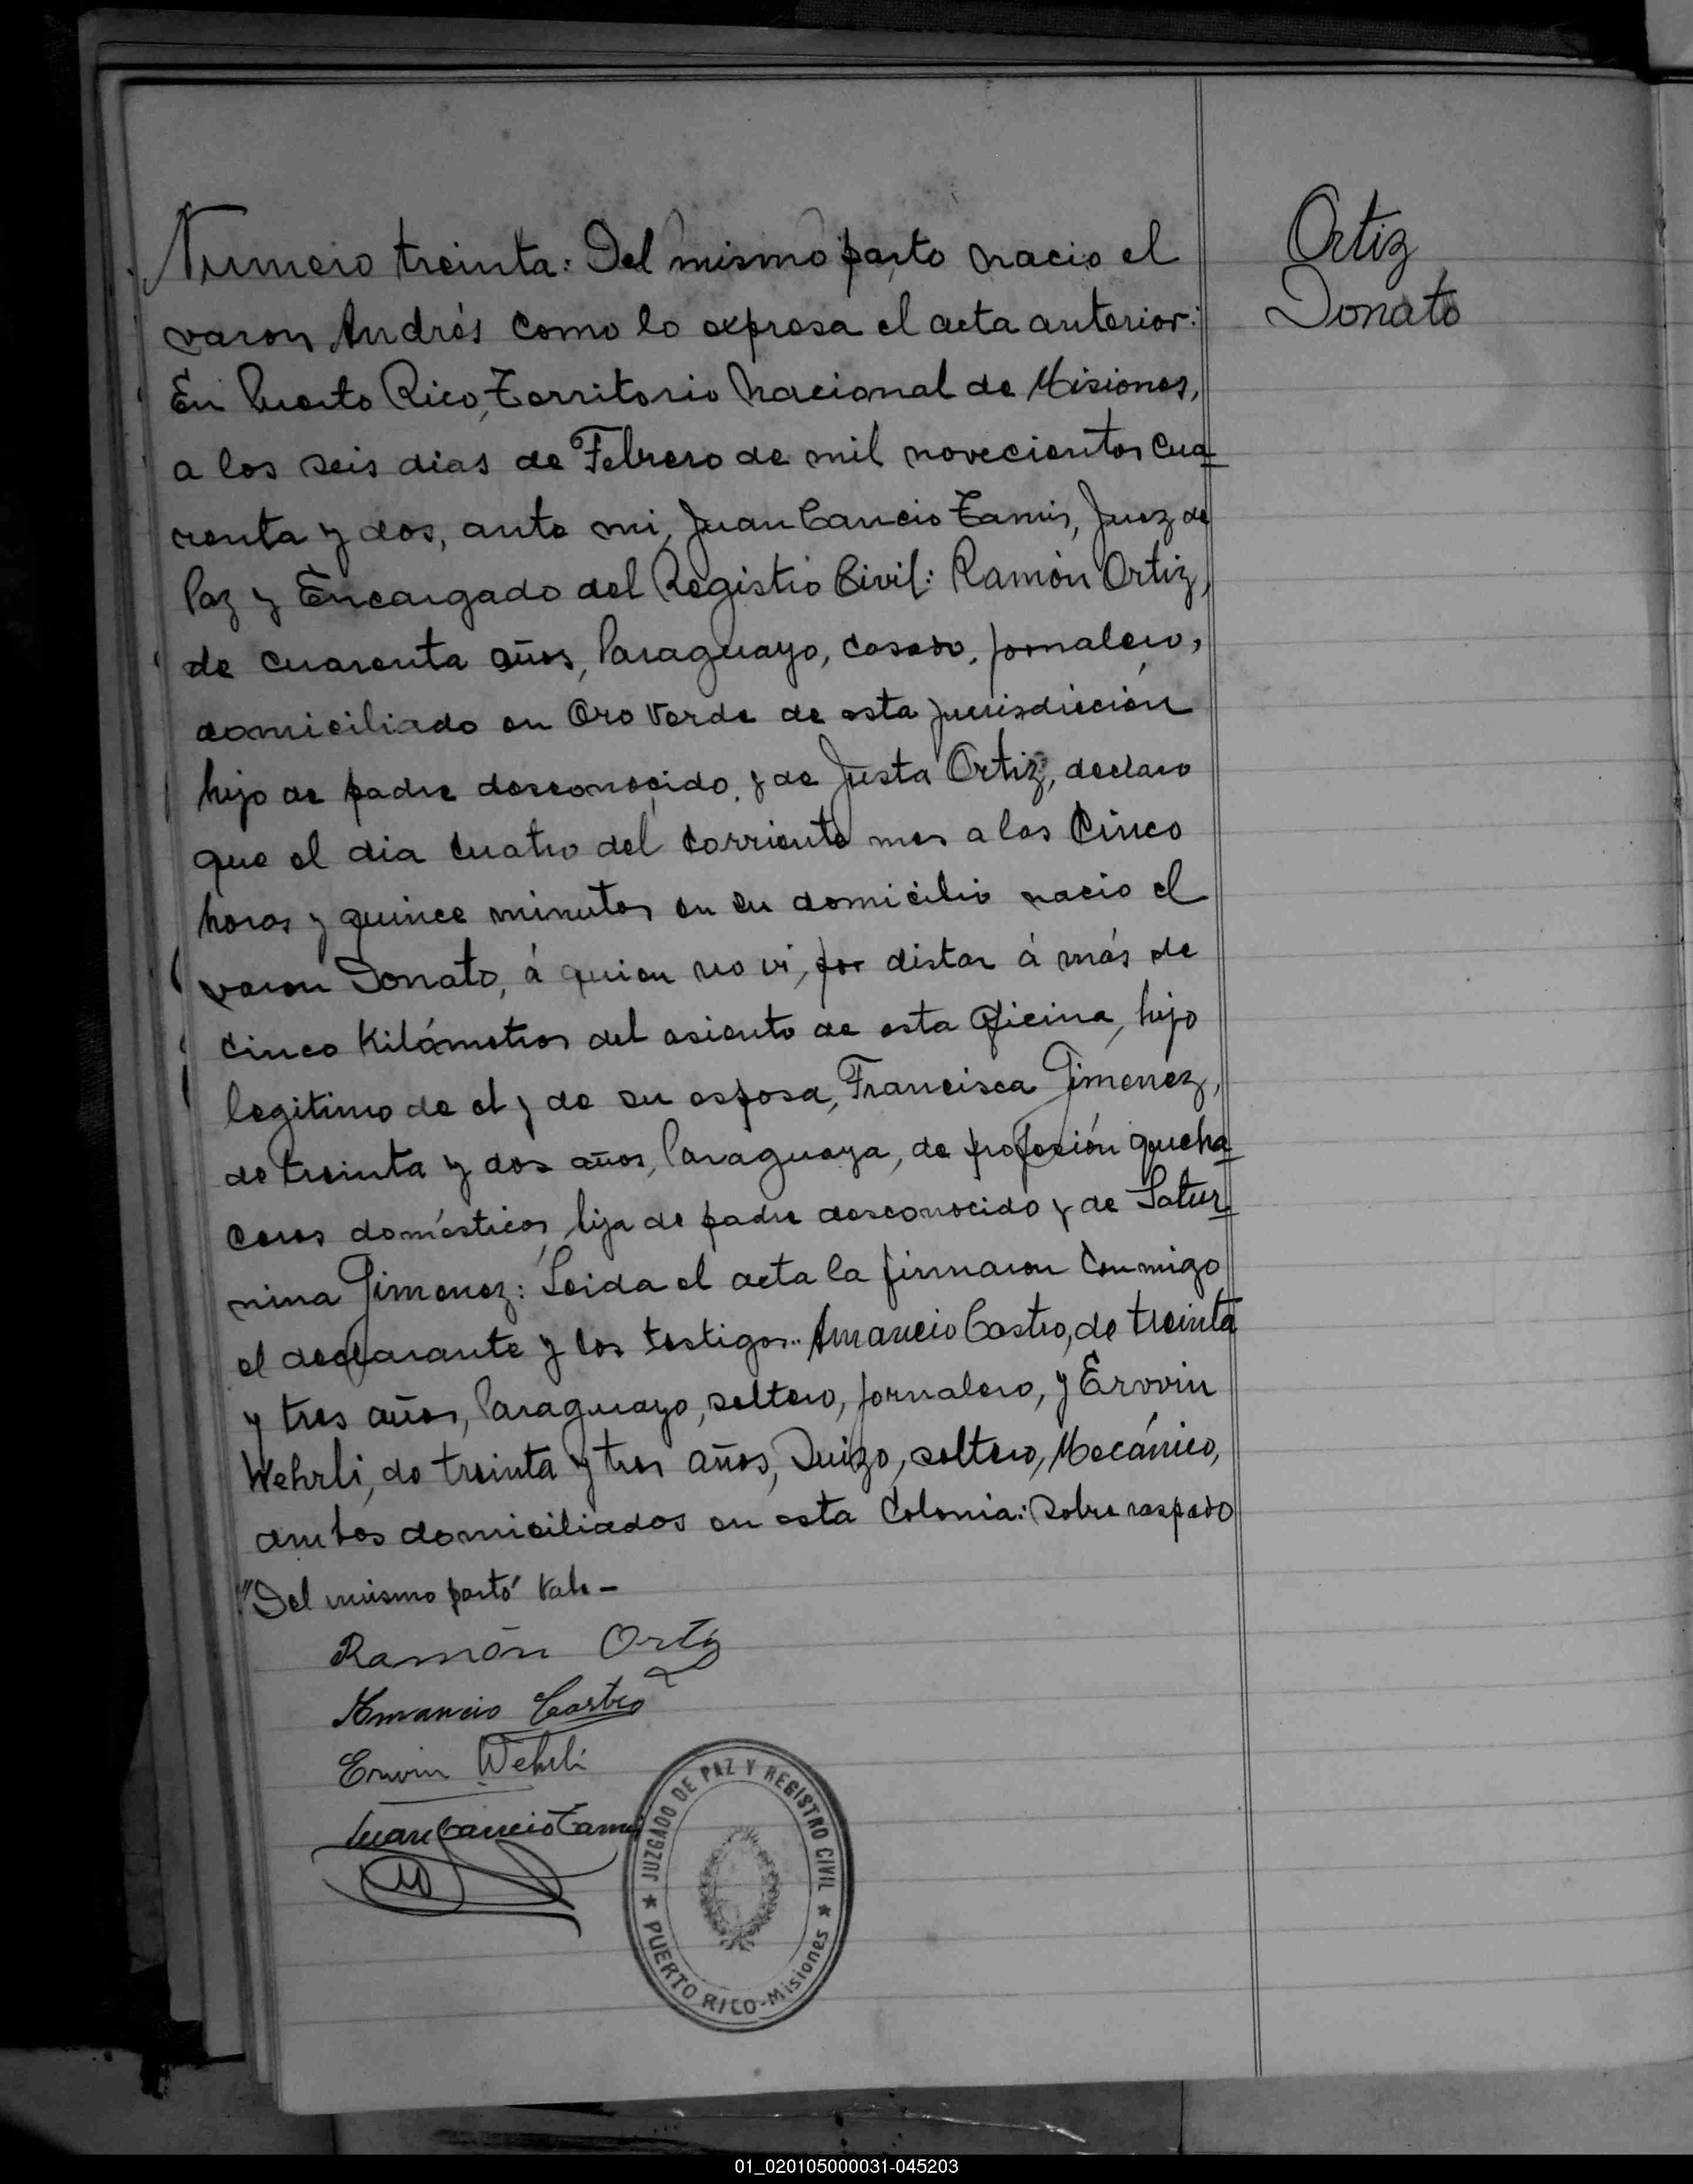 Numero treinta: Del mismo parto nacio el
varon Andrés como lo expresa el acta anterior:
En Puerto Rico, Territorio Nacional de Misiones,
a los seis dias de Febrero de mil novecientos cua
renta y dos, ante mi, Juan Cancio Tamis, Juez de
Paz y Encargado del Registro Civil: Ramón Ortiz,
de cuarenta años, Paraguayo, casado, jornalero,
domiciliado en Oro Verde de esta jurisdicción
hijo de padre desconocido y de Justa Ortiz, declaro
que el dia cuatro del corriente mes a las cinco
horas y quince minutos en su domicilio nacio el
varon Donato, á quien no vi, por distar á más de
cinco Kilómetros del asiento de esta oficina, hijo
legitimo de el y de su esposa, Francisca Gimenez,
de treinta y dos años, Paraguaya, de profesión queha
ceres domésticos, hija de padre desconocido y de Satur
nina Gimenez: Leida el acta la firmaron conmigo
el declarante y los testigos.. Amancio Castro, de treinta
y tres años, Paraguayo, soltero, jornalero, y Ervvin
Wehrli, de treinta y tres años, Suizo, soltero, Mecánico,
ambos domiciliados en esta Colonia: Sobre raspado
"Del mismo parto" Vale -
Ramón Ortiz
Amancio Castro
Erwin Wehrli
Juan Cancio Tamis
JUZGADO DE PAZ Y REGISTRO CIVIL
PUERTO RICO-Misiones
Ortiz
Donato
01_020105000031-045203